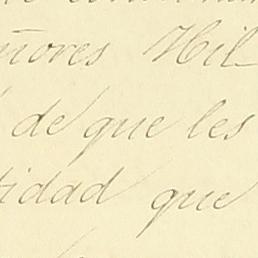 ñores Hil
de que les
tidad que